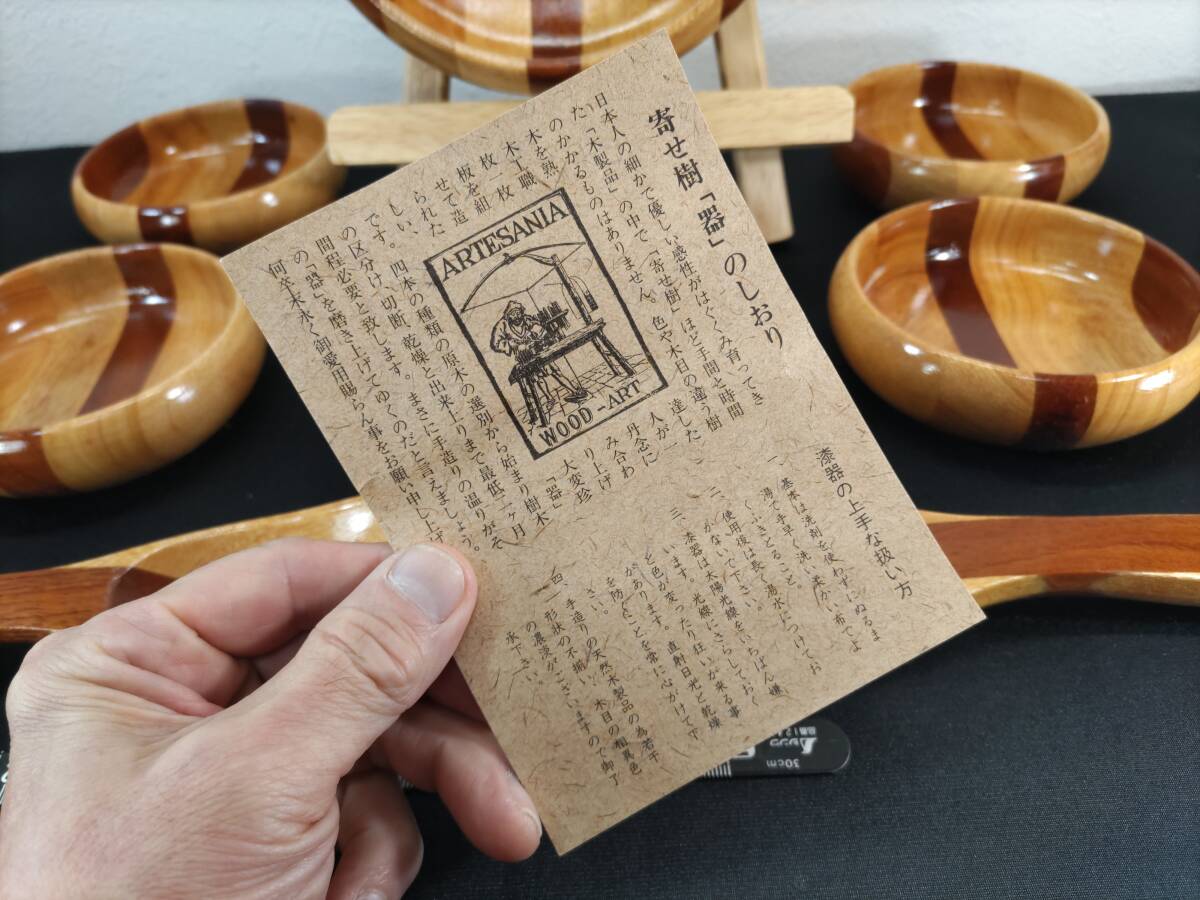 寄せ樹「器」のしおり
日本人の細かで優しい感性がはぐくみ育ってき
た、「木製品」の中で、「寄せ樹」ほど手間と時間
のかかるものはありません。色や木目の違う樹
木を熟
達した
木工職
人が一
枚一枚
丹念に
板を組
み合わ
せて造
り上げ
られた
大変珍
しい、
「器」
です。四本の種類の原木の選別から始まり樹木
の区分け、切断、乾燥と出来上りまで最低二ヶ月
間程必要と致します。まさに手造りの温りがそ
の「器」を磨き上げてゆくのだと言えましょう。
何卒末永く御愛用賜らん事をお願い申し上げ
ARTESANIA
WOOD-ART
漆器の上手な扱い方
一、基本は洗剤を使わずにぬるま
湯で手早く洗い柔かい布でよ
くふきとること。
二、使用後は長く湯水につけてお
かないで下さい。
三、漆器は太陽光線をいちばん嫌
います。光線にさらしておく
と色が変ったり狂いが来る事
があります。直射日光と乾燥
を防ぐことを常に心がけて下
さい。
四、手造りの天然木製品の為若干
形状の不揃い、木目の相異色
の濃淡がございますので御了
承下さい。
30cm